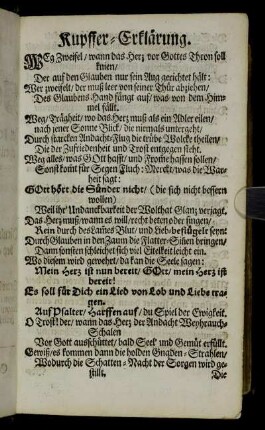 Kupffer-Erklärung.
WEg Zweifel / wann das Herz vor Gottes Thron soll
knien /
Der auf den Glauben nur sein Aug gerichtet hält:
Wer zweifelt / der muß leer von seiner Thür abziehen /
Des Glaubens Hand fängt auf / was von dem Himmel fällt.
Weg / Trägheit / wo das Herz muß als ein Adler eilen /
nach jener Sonne Blick / die niemals untergeht /
Durch starcken Andacht-Flug die trübe Wolcke theilen /
Die der Zufriedenheit und Trost entgegen steht.
Weg alles / was GOtt hasst / und Fromme hassen sollen /
Sonst komt für Segen Fluch: Merckt / was die Warheit sagt:
GOtt hört die Sünder nicht / (die sich nicht bessern
wollen)
Weil ihr Undanckbarkeit der Wolthat Glanz verjagt.
Das Herz muß / wann es will / recht beten oder singen /
Rein durch des Lamms Blut / und Lieb-beflügelt seyn:
Durch Glauben in den Zaum die Flatter-Sinnen bringen /
Dann sonsten schleichet sich viel Eitelkeit leicht ein.
Wo diesem wird gewehrt / da kan die Seele sagen:
Mein Herz ist nun bereit / GOtt / mein Herz ist
bereit!
Es soll für Dich ein Lied von Lob und Liebe tragen.
Auf Psalter / Harffen auf / du Spiel der Ewigkeit.
O Trost! der / wann das Herz der Andacht Weyhrauch-
Schalen
Vor Gott ausschüttet / bald Seel und Gemüt erfüllt.
Gewiß / es kommen dann die holden Gnaden-Strahlen /
Wodurch die Schatten-Nacht der Sorgen wird gestillt.
Die